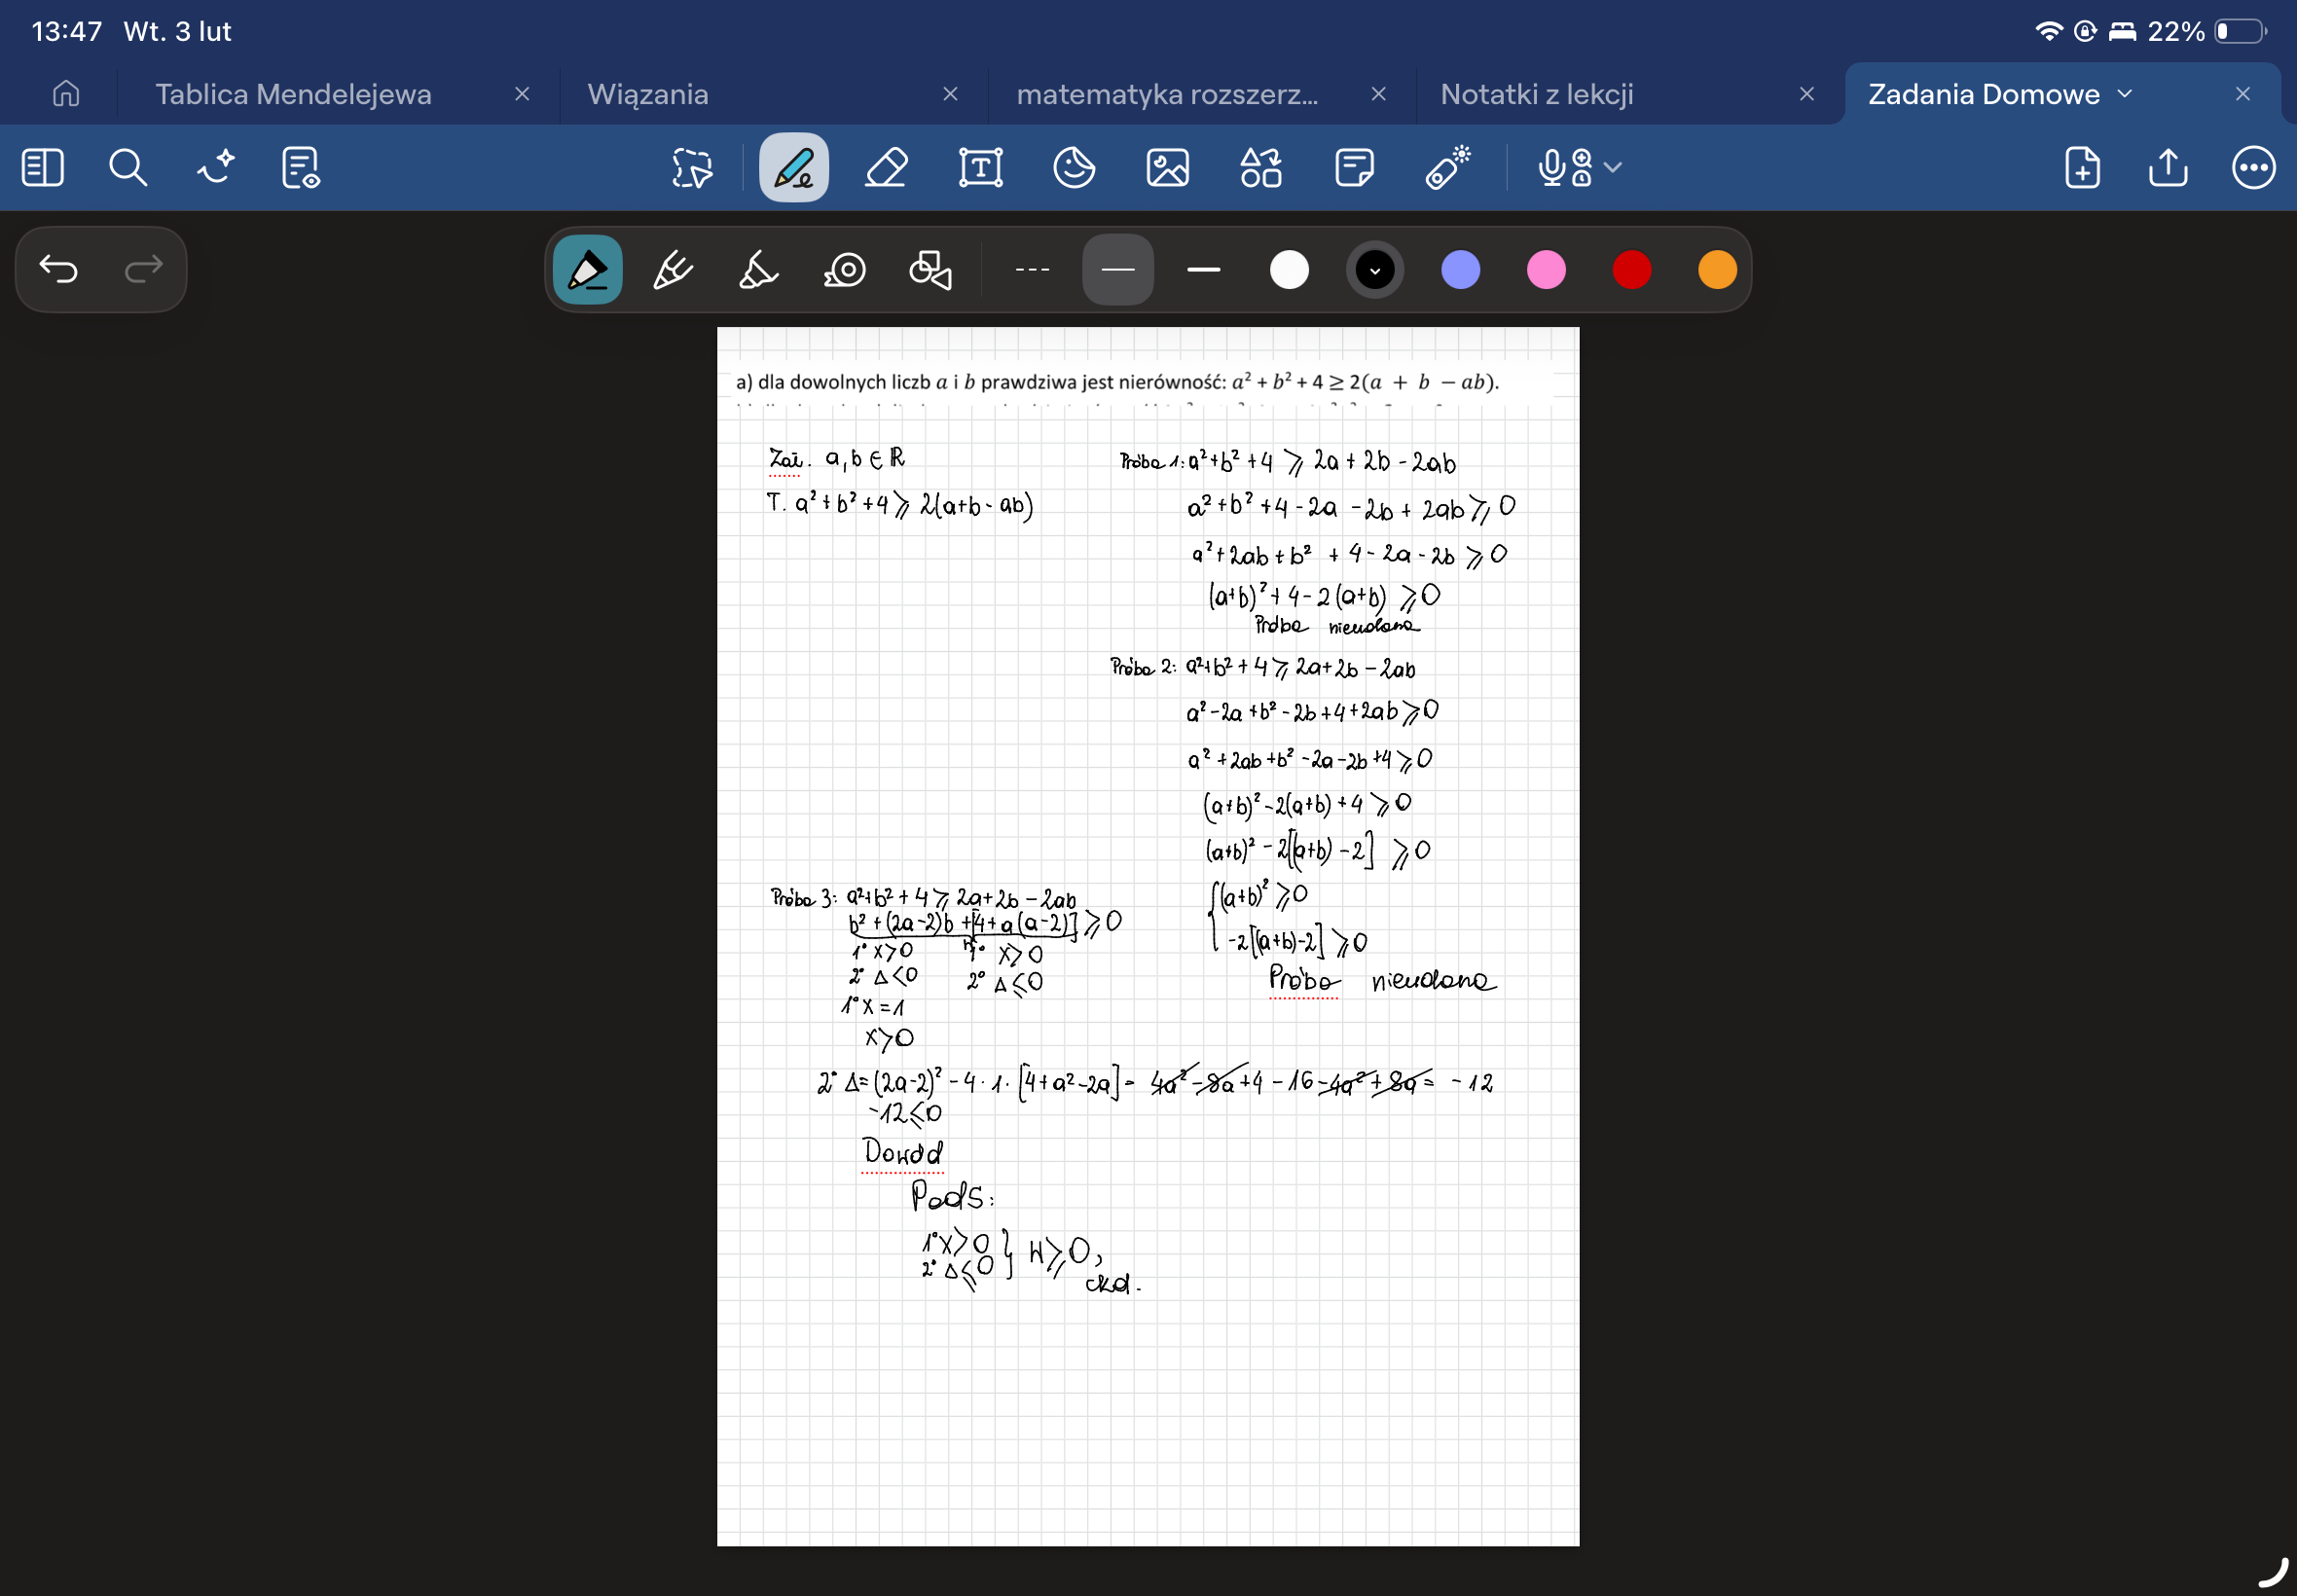 13:47 Wt. 3 lut
22%
Tablica Mendelejewa
Wiązania
matematyka rozszerz...
Notatki z lekcji
Zadania Domowe
a) dla dowolnych liczb a i b prawdziwa jest nierówność: a² + b² + 4 ≥ 2(a + b − ab).
Zał. a,b ∈ ℝ
T. a² + b² + 4 ⩾ 2(a+b - ab)
Próba 1: a²+b² +4 ⩾ 2a + 2b - 2ab
a² + b² + 4 - 2a - 2b + 2ab ⩾ 0
a² + 2ab + b² + 4 - 2a - 2b ⩾ 0
(a+b)² + 4 - 2(a+b) ⩾ 0
Próba nieudana
Próba 2: a²+b² + 4 ⩾ 2a+2b - 2ab
a² - 2a + b² - 2b + 4 + 2ab ⩾ 0
a² + 2ab + b² - 2a - 2b + 4 ⩾ 0
(a+b)² - 2(a+b) + 4 ⩾ 0
(a+b)² - 2[(a+b) - 2] ⩾ 0
{(a+b)² ⩾ 0
-2[(a+b)-2] ⩾ 0
Próba nieudana
Próba 3: a²+b² + 4 ⩾ 2a+2b - 2ab
b² + (2a-2)b + [4 + a(a-2)] ⩾ 0
1° x>0 1° x>0
2° Δ<0 2° Δ⩽0
1° x = 1
x>0
2° Δ= (2a-2)² - 4 · 1 · [4 + a² - 2a] = 4a² - 8a + 4 - 16 - 4a² + 8a = -12
-12 ⩽ 0
Dowód
Pods:
1° x>0
2° Δ⩽0 } W ⩾ 0,
ckd.